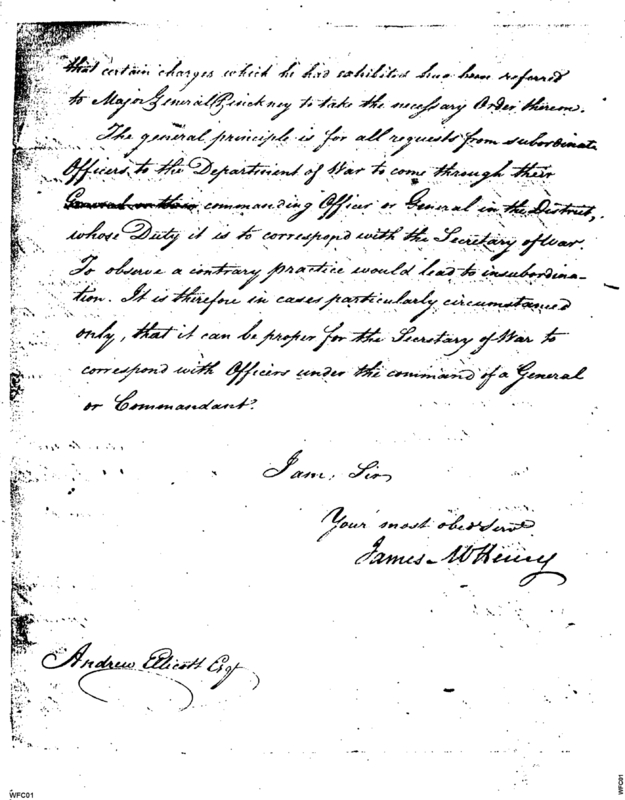 that certain charges which he had exhibited has been referred
to Major General Pinckney to take the necessary Order therein.
The general principle is for all requests from subordinate
Officers to the Department of War to come through their
General or their commanding Officer or General in the District,
whose Duty it is to correspond with the Secretary of War.
To observe a contrary practice would lead to insubordina-
tion. It is therefore in cases particularly circumstanced
only, that it can be proper for the Secretary of War to
correspond with Officers under the command of a General
or Commandant.
I am, Sir
Your most obed Servt
James McHenry
Andrew Ellicott Esqr
WFC01
WFC01